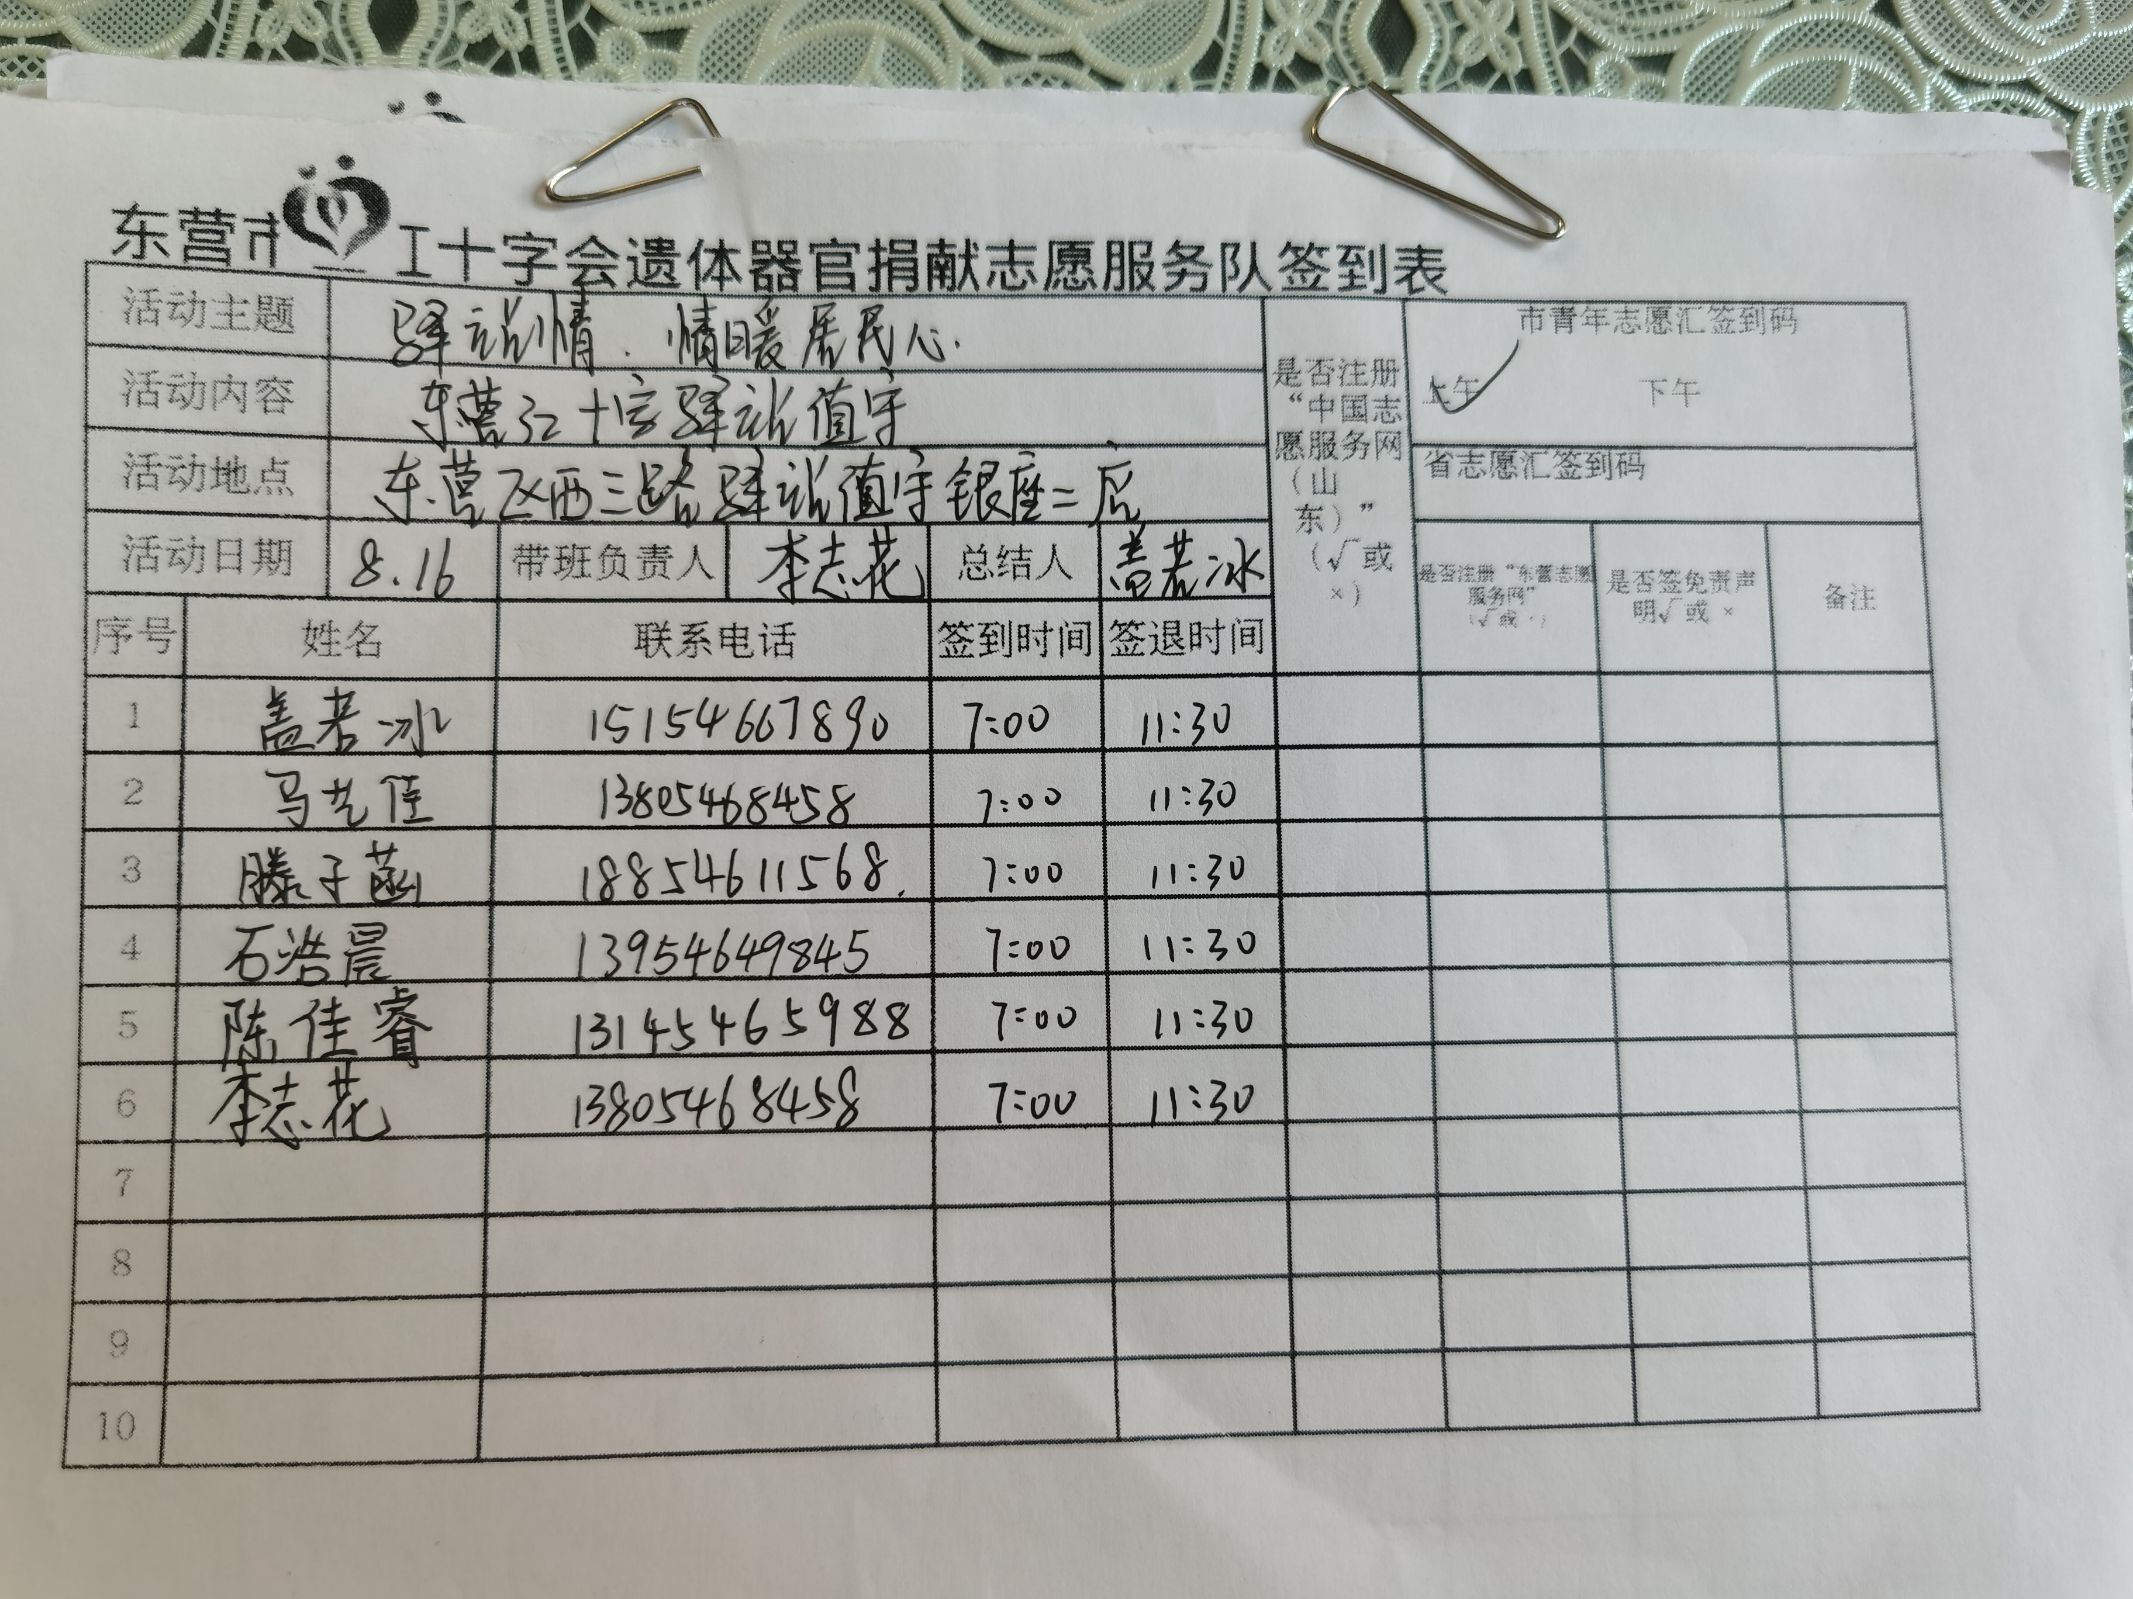 东营市 工十字会遗体器官捐献志愿服务队签到表
活动主题 驿站情.情暖居民心.
活动内容 东营红十字驿站值守
活动地点 东营区西三路驿站值守银座二店
活动日期 8.16 带班负责人 李志花 总结人 盖若冰
是否注册
“中国志
愿服务网
(山
东)”
(√或
×)
市青年志愿汇签到码
上午 下午
省志愿汇签到码
是否注册“东营志愿
服务网”
(√或×)
是否签免责声
明√或 ×
备注
序号 姓名 联系电话 签到时间 签退时间
1 盖若冰 15154667890 7:00 11:30
2 马艺佳 13805468458 7:00 11:30
3 滕子菡 18854611568. 7:00 11:30
4 石浩晨 13954649845 7:00 11:30
5 陈佳睿 13145465988 7:00 11:30
6 李志花 13805468458 7:00 11:30
7
8
9
10